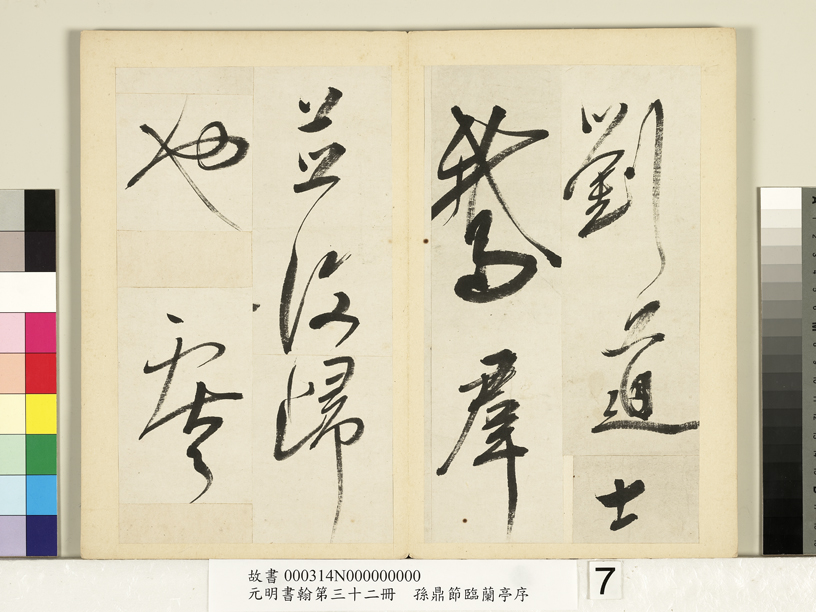 劉道士
鵞羣
並復歸
也
故書 000314N000000000
元明書翰第三十二冊 孫鼎節臨蘭亭序
7